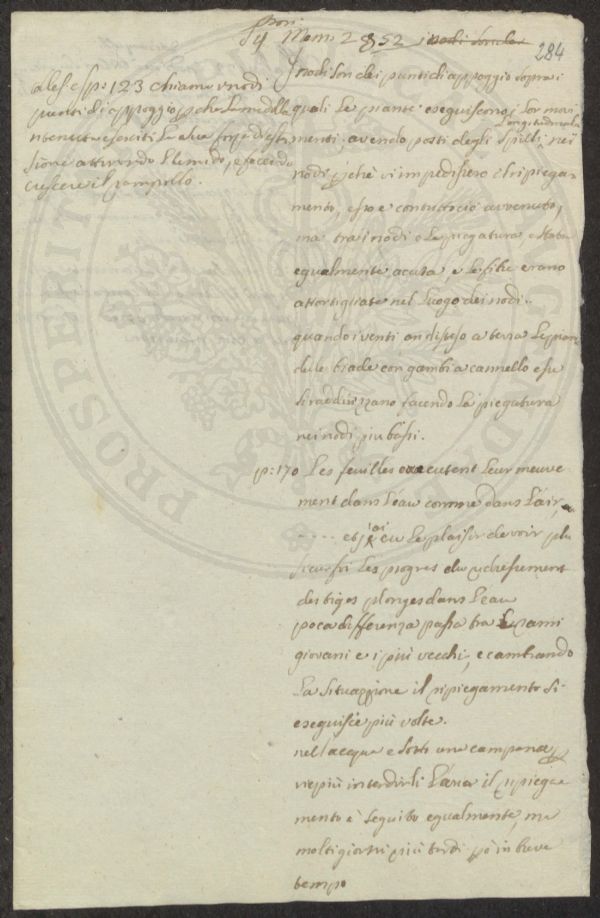 284
alef. e sp: 123 chiama i nodi
punti di appoggio pche la midolla
sione attirando l'umido, e facendo
crescere il rampollo.
I nodi son dei punti di appoggio sopra i
quali le piante eseguiscono i lor movi
longitudinale
menti. avendo posti degli spilli nei
nodi pchè vi impedissero il ripiega-
mento, esso è contuttociò avvenuto,
ma tra i nodi e la piegatura è stata
egualmente acuta, e le fibre erano
attortigliate nel luogo dei nodi.
quando i venti an disteso a terra le pian
delle biade con gambi a cannello esse
si raddrizzano facendo la piegatura
nei nodi piu bassi.
p: 170 Les feuilles executent leur mouve
ment dans l'eau comme dans l'air,
..... et j'ai eu le plaisir de voir plu
sieurs fois les progres du redressement
des tiges plongés dans l'eau
poca differenza passa tra i rami
giovani e i più vecchi, e cambiando
la situazione il ripiegamento si
eseguisce più volte.
nell'acqua e sotto una campana p
vie più interdirli l'aria il ripiega
mento è seguito egualmente, ma
molti giorni più tardi pò in breve
tempo
PROSPERIT